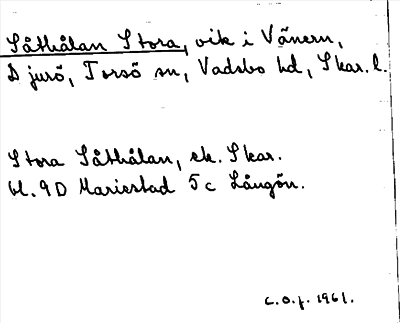 Såthålan Stora, vik i Vänern,
Djurö, Torsö sn, Vadsbo hd, Skar. l.
Stora Såthålan, ek. Skar.
bl. 9D Mariestad 5c Långön.
c.o.j. 1961.